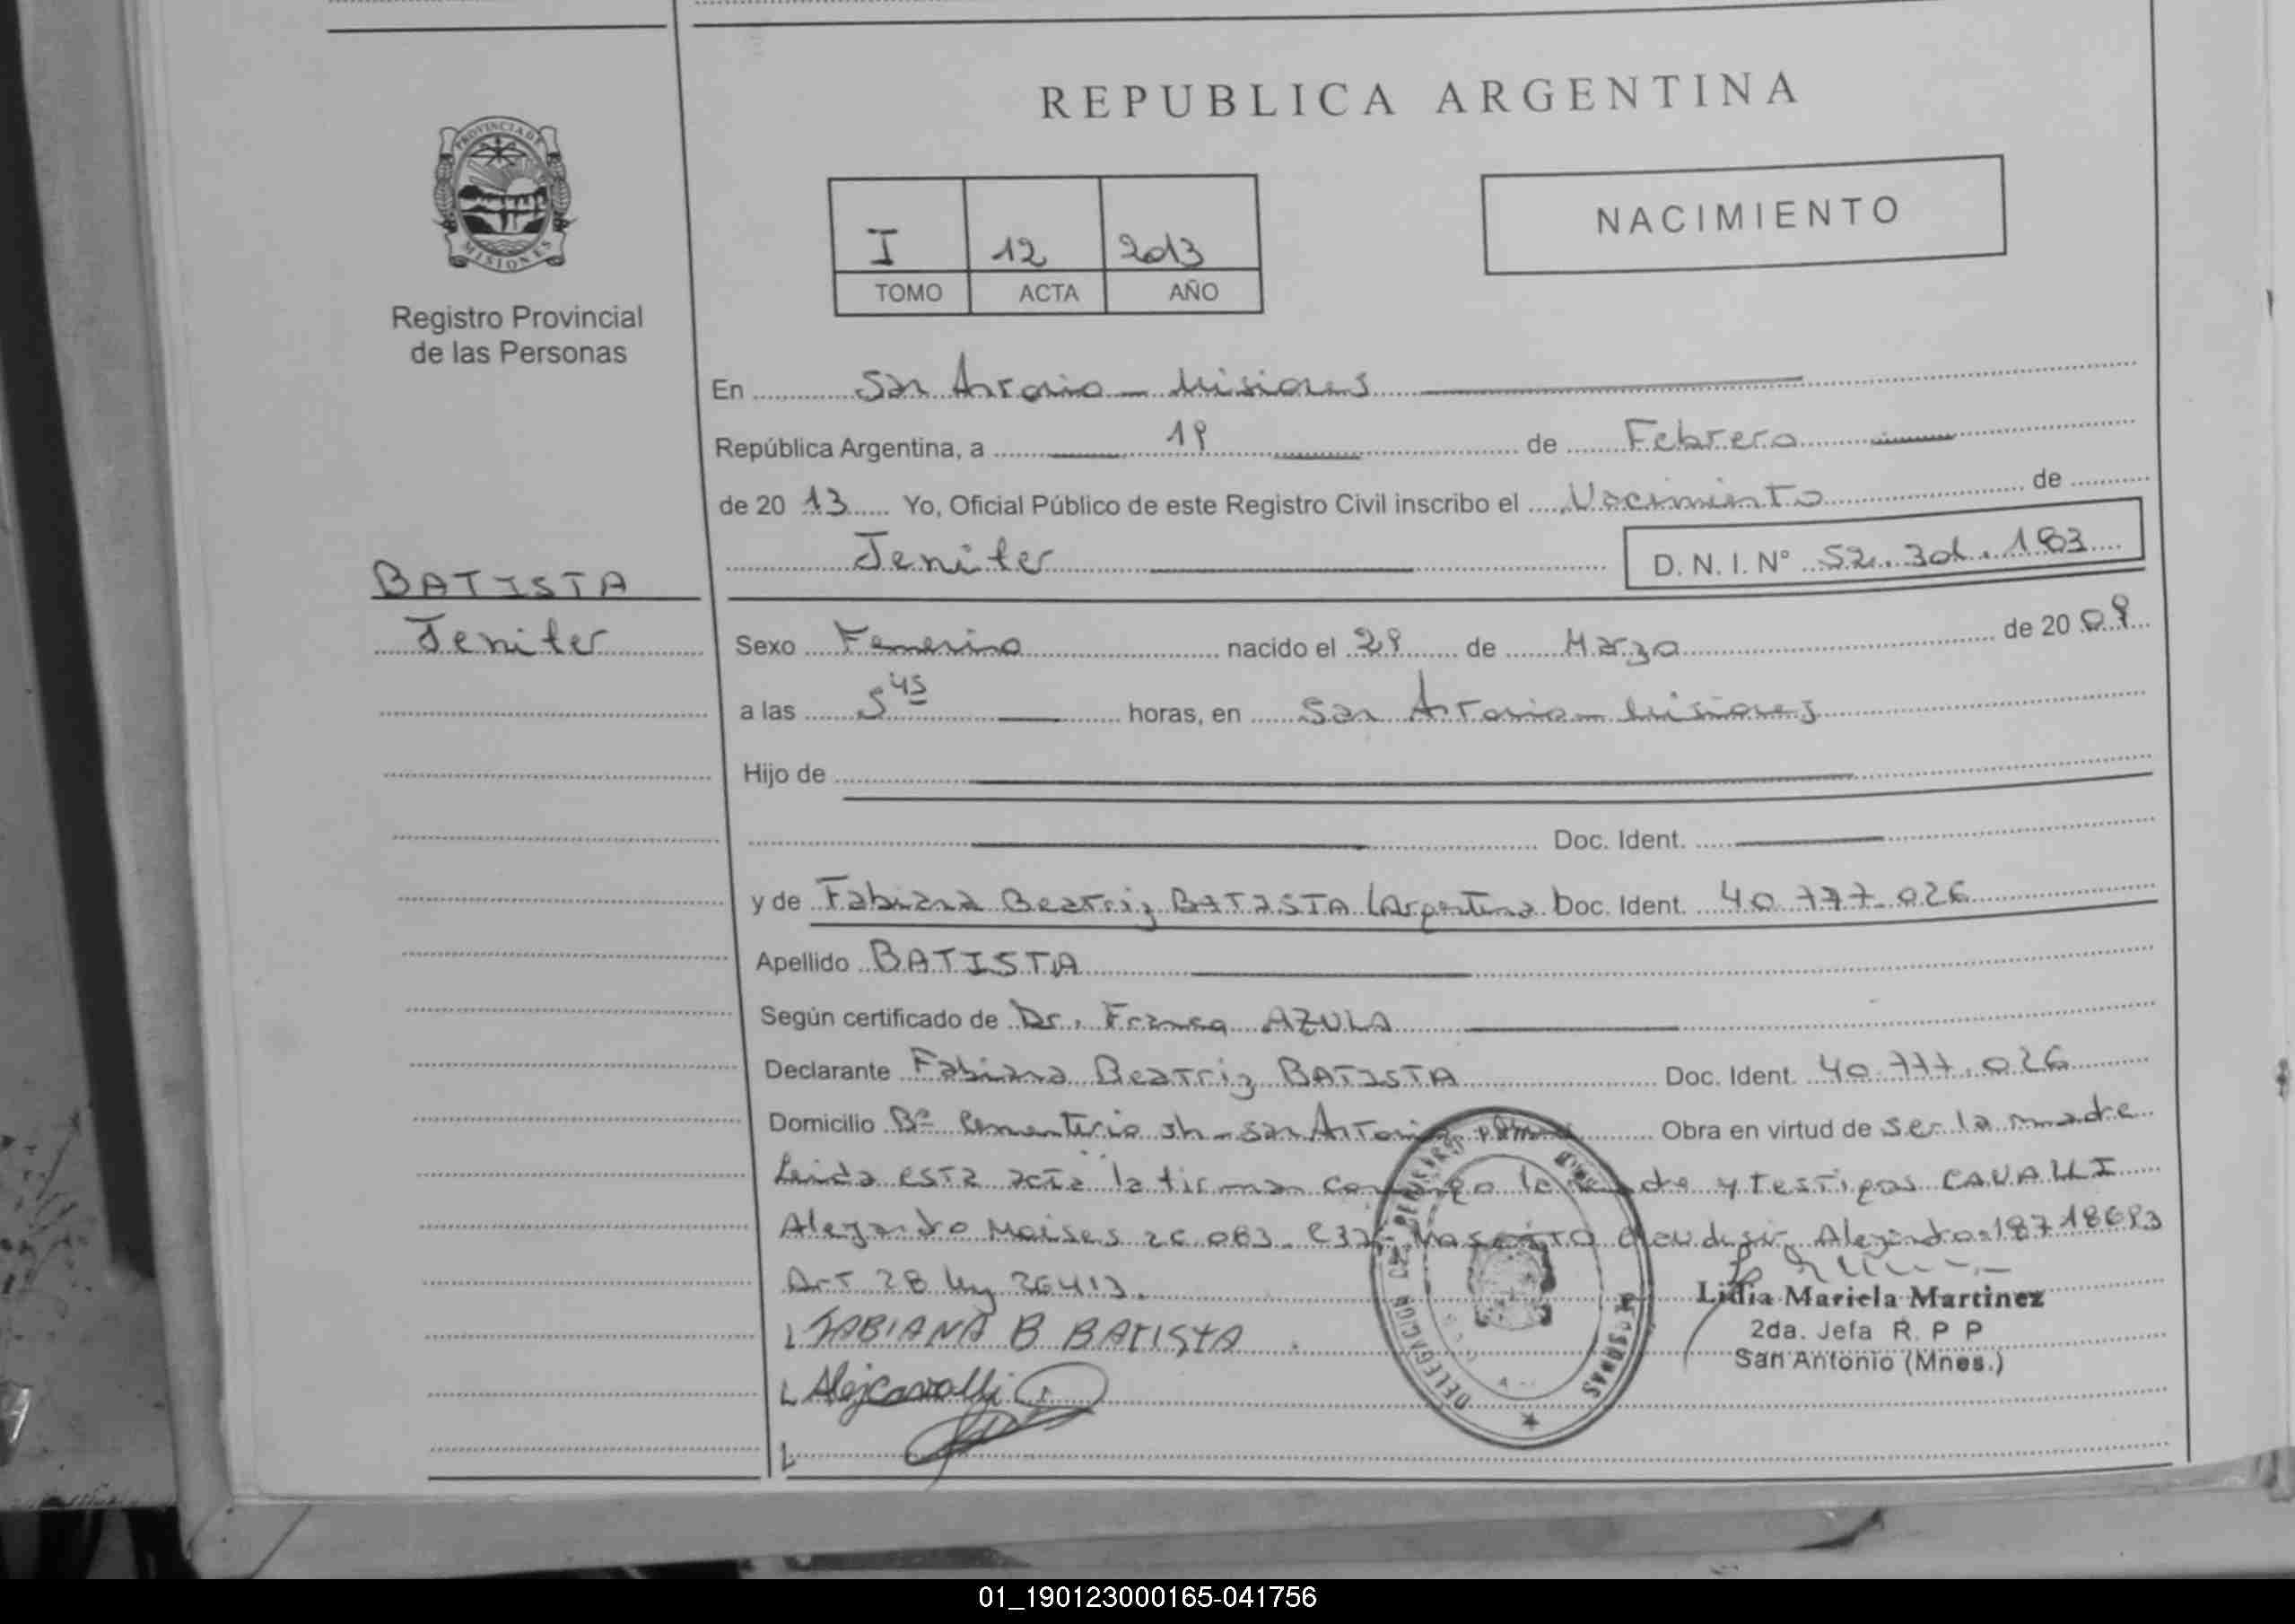 REPUBLICA ARGENTINA
PROVINCIA DE MISIONES
Registro Provincial
de las Personas
I 12 2013
TOMO ACTA AÑO
NACIMIENTO
En San Antonio - Misiones
República Argentina, a 19 de Febrero
de 20 13 Yo, Oficial Público de este Registro Civil inscribo el Nacimiento de
Jenifer D. N. I. Nº 52.301.183
BATISTA
Jenifer
Sexo Femenino nacido el 29 de Marzo de 20 09
a las 5 45 horas, en San Antonio - Misiones
Hijo de
Doc. Ident.
y de Fabiana Beatriz BATISTA (Argentina Doc. Ident. 40.777.026
Apellido BATISTA
Según certificado de Dr. Franco AZULA
Declarante Fabiana Beatriz BATISTA Doc. Ident. 40.777.026
Domicilio Bº Cementerio sn - San Antonio Obra en virtud de ser la madre
Leida esta acta la firman y testigos CAVALLI
Alejandro Moises Alejandro
Art 28 Ley 26413.
FABIANA B BATISTA
AlejCavalli
DELEGACION
Lidia Mariela Martinez
2da. Jefa R. P P
San Antonio (Mnes.)
01_190123000165-041756